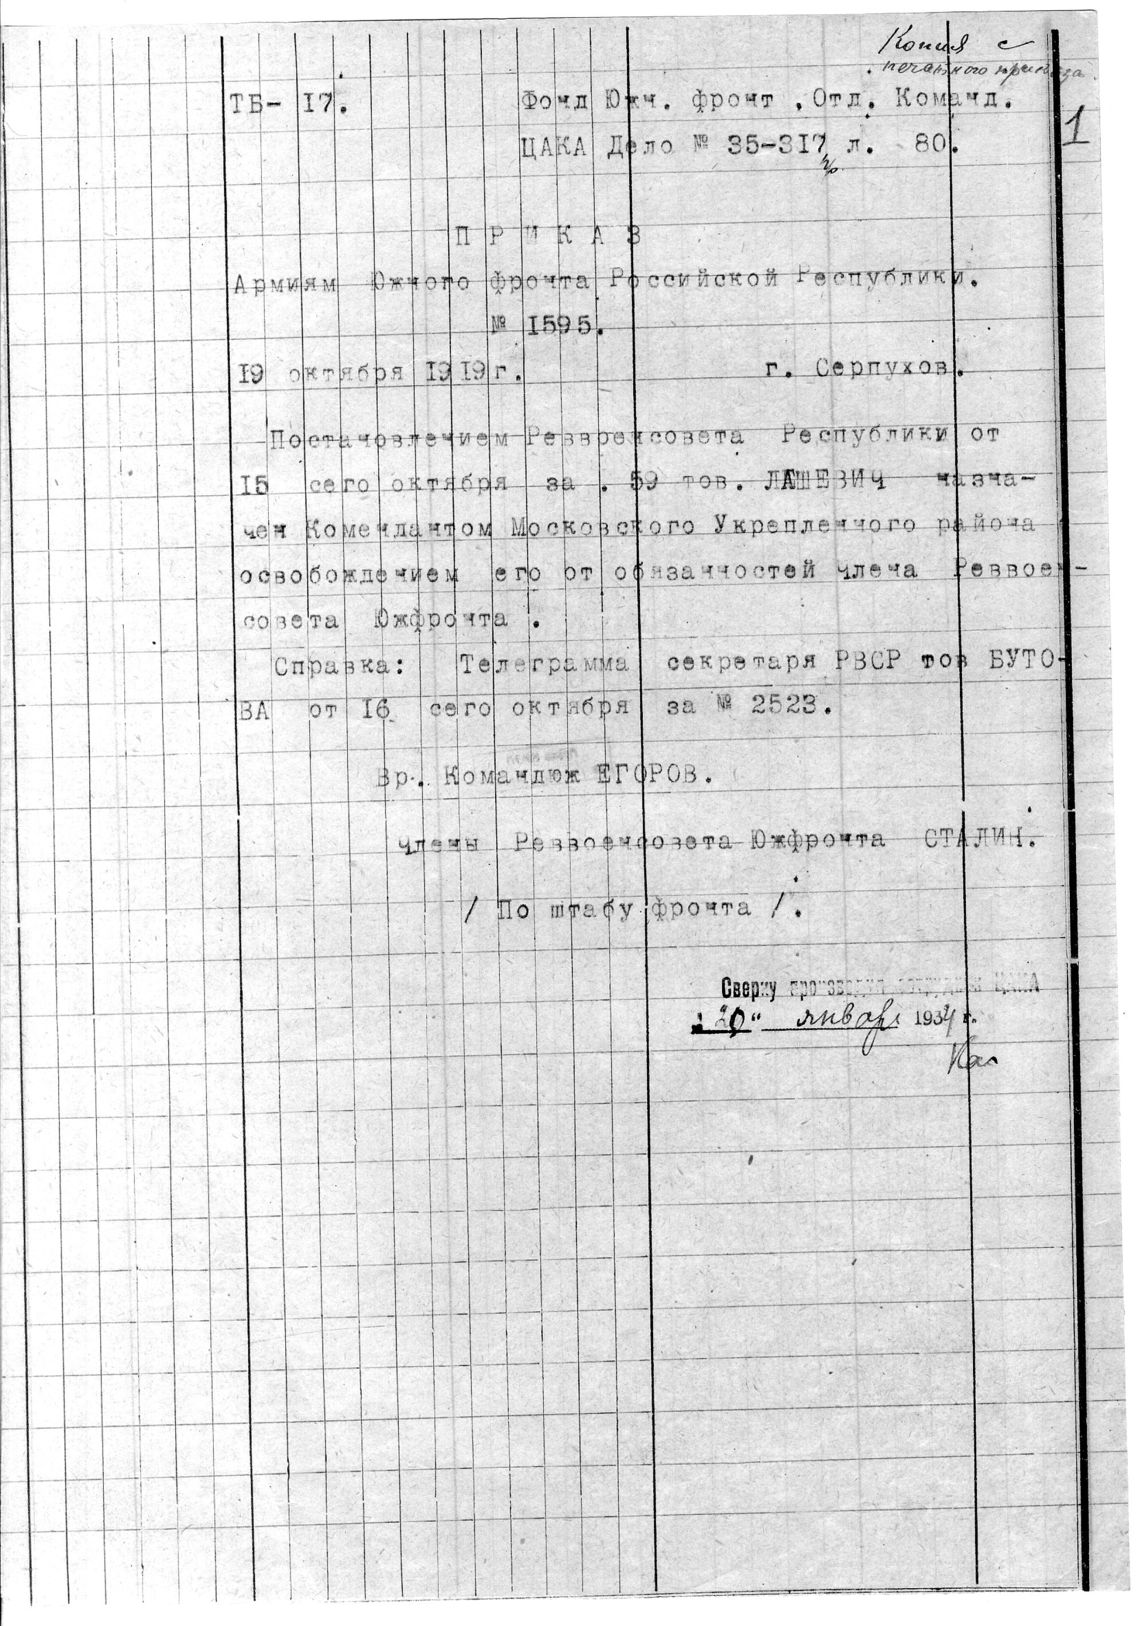 Копия с
печатного приказа
1
ТБ- I7. Фонд Южн. фронт . Отд. Команд.
ЦАКА Дело № 35-317 л. 80.
П Р И К А З
Армиям Южного фронта Российской Республики.
№ I595.
I9 октября I9I9г. г. Серпухов.
Постановлением Реввоенсовета Республики от
I5 сего октября за . 59 тов. ЛАШЕВИЧ назна-
чен Комендантом Московского Укрепленного района
освобождением его от обязанностей члена Реввоен-
совета Южфронта .
Справка: Телеграмма секретаря РВСР тов БУТО-
ВА от I6 сего октября за № 2523.
Вр. Командюж ЕГОРОВ.
Члены Реввоенсовета Южфронта СТАЛИН.
/ По штабу фронта /.
Сверку производил сотрудник ЦАКА
"20" января 1934 г.